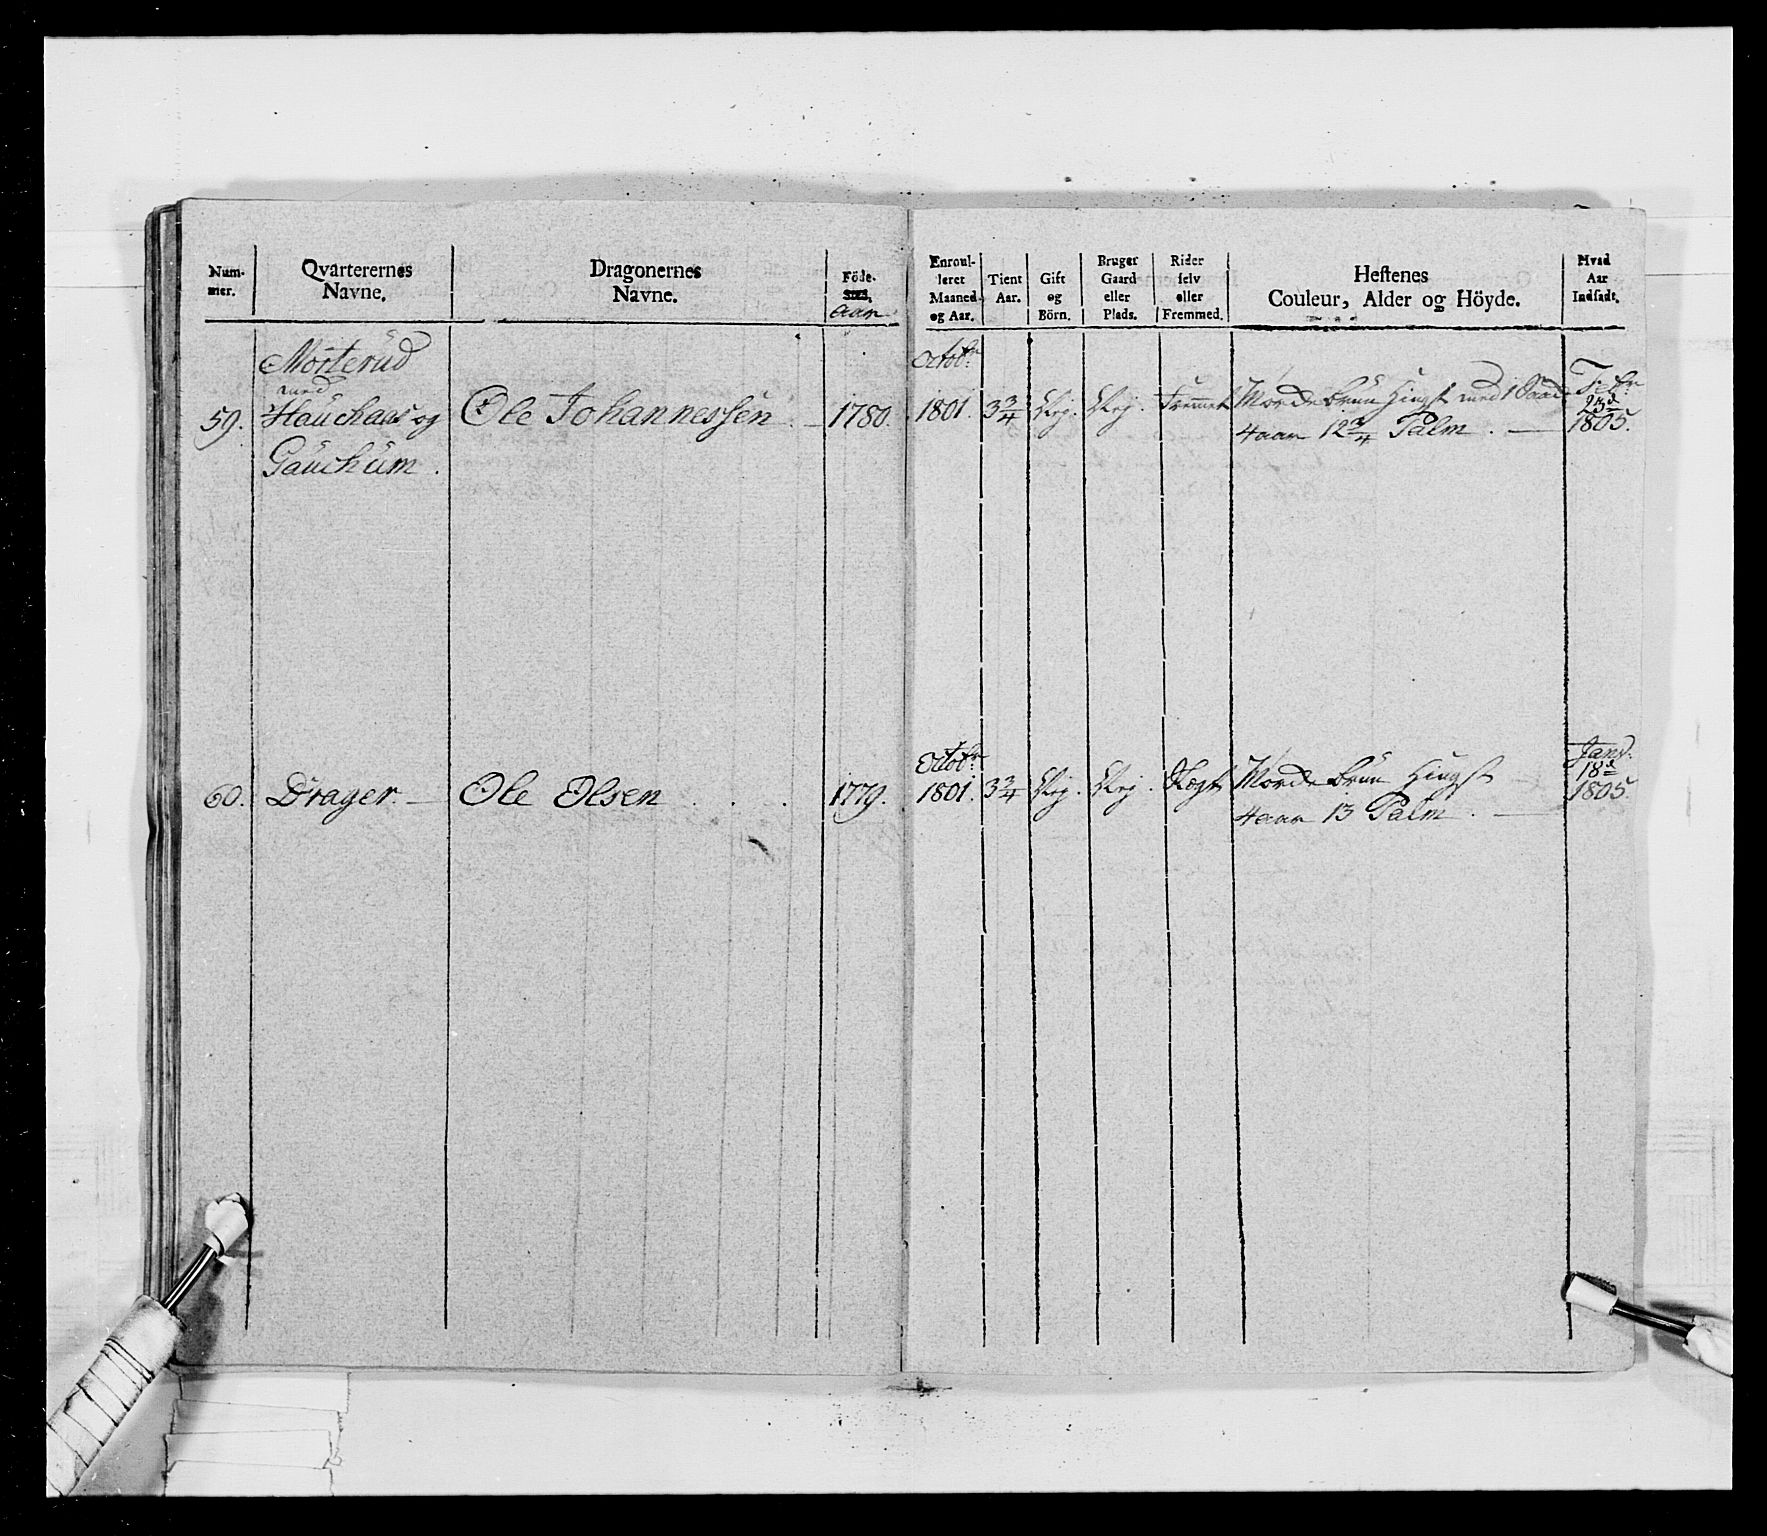 Num-
mer.
Qvarterernes
Navne.
Dragonernes
Navne.
Föde-
Sted.
Aar
Enroul-
leret
Maaned
og Aar.
Tient
Aar.
Gift
og
Börn.
Bruger
Gaard
eller
Plads.
Rider
selv
eller
Fremmed.
Hestenes
Couleur, Alder og Höyde.
Hvad
Aar
Indsadt.
Morterud
med
59. Hauchaas og
Gauchum.
Ole Johannessen. 1780.
Octobr
1801. 3¾ Nej. Nej. Fremmet Morde brun Hingst med 1
4 aar 12¾ Palm.
Febr
23d
1805.
60. Drager. Ole Olsen 1779.
Octobr
1801. 3¾ Nej. Nej. Morde brun Hingst
4 aar 13 Palm.
Janv.
18d
1805.